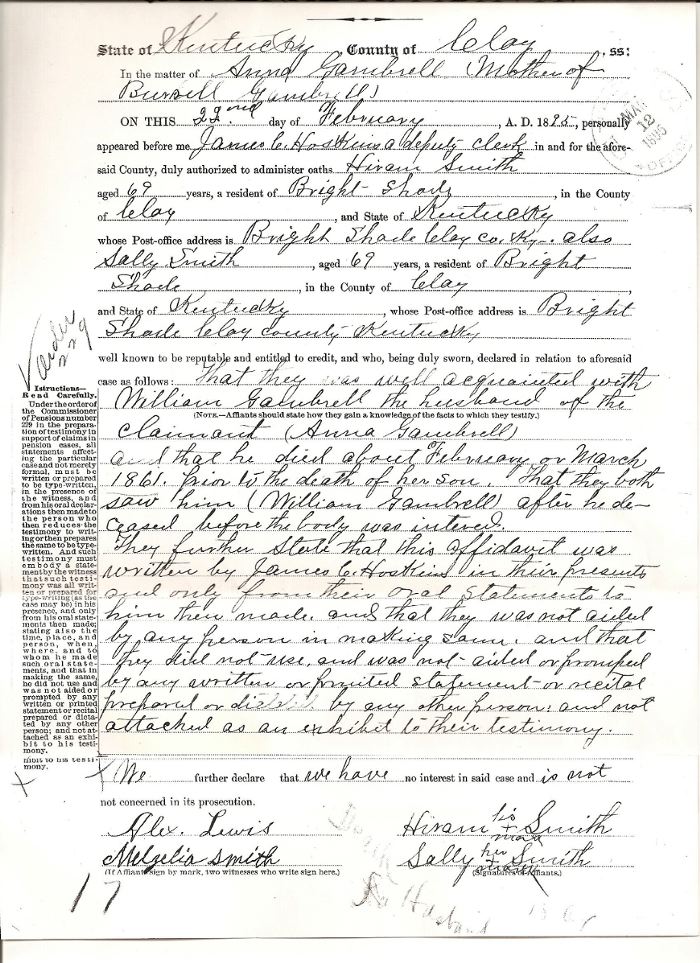 State of Kentucky County of Clay, ss:
In the matter of Anna Gambrell (Mother of
Burrell Gambrell)
ON THIS 22nd day of February, A. D. 1895, personally
appeared before me James C. Hoskins a deputy clerk in and for the afore-
said County, duly authorized to administer oaths Hiram Smith
aged 69 years, a resident of Bright Shade, in the County
of Clay, and State of Kentucky
whose Post-office address is Bright Shade Clay co. Ky. also
Sally Smith, aged 69 years, a resident of Bright
Shade, in the County of Clay,
and State of Kentucky, whose Post-office address is Bright
Shade Clay county Kentucky
well known to be reputable and entitled to credit, and who, being duly sworn, declared in relation to aforesaid
case as follows: That they was well acquainted with
William Gambrell the husband of the
(NOTE.—Affiants should state how they gain a knowledge of the facts to which they testify.)
claimant (Anna Gambrell)
and that he died about February or March
1861. prior to the death of her son. That they both
saw him (William Gambrell) after he de-
ceased before the body was intered.
They further state that this affidavit was
written by James C. Hoskins in their presents
and only from their oral statements to
him then made. and that they was not aided
by any person in making same. and that
they did not use, and was not aided or promped
by any written or printed statement or recital
prepared or by any other person; and not
attached as an exhibit to their testimony.
We further declare that we have no interest in said case and is not
not concerned in its prosecution.
Alex. Lewis Hiram his x mark Smith
Melzelia Smith Sally her x mark Smith
(If Affiants sign by mark, two witnesses who write sign here.) (Signatures of Affiants.)
17
Husband
MAR
12
1895
229
Istructions—
Read Carefully.
Under the order of
the Commissioner
of Pensions number
229 in the prepara-
tion of testimony in
support of claims in
pension cases, all
statements affect-
ing the particular
case and not merely
formal, must be
written or prepared
to be type-written,
in the presence of
the witness, and
from his oral declar-
ations then made to
the person who
then reduces the
testimony to writ-
ing or then prepares
the same to be type-
written. And such
testimony must
embody a state-
ment by the witness
that such testi-
mony was all writ-
ten or prepared for
type-writing (as the
case may be) in his
presence, and only
from his oral state-
ments then made;
stating also the
time, place, and
person, when,
where, and to
whom he made
such oral state-
ments, and that in
making the same,
he did not use and
was not aided or
prompted by any
written or printed
statement or recital
prepared or dicta-
ted by any other
person; and not at-
tached as an exhi-
bit to his testi-
mony.
mony.